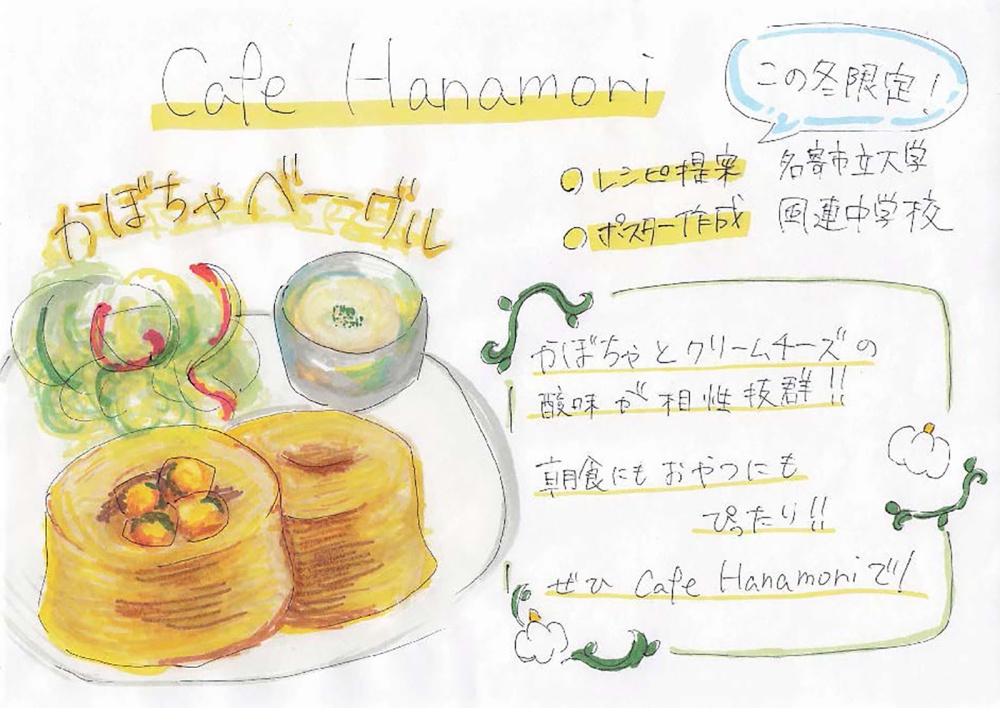 Cafe Hanamori
この冬限定！
かぼちゃベーグル
レシピ提案 名寄市立大学
ポスター作成 風連中学校
かぼちゃとクリームチーズの
酸味が相性抜群！！
朝食にもおやつにも
ぴったり！！
ぜひ Cafe Hanamoriで！